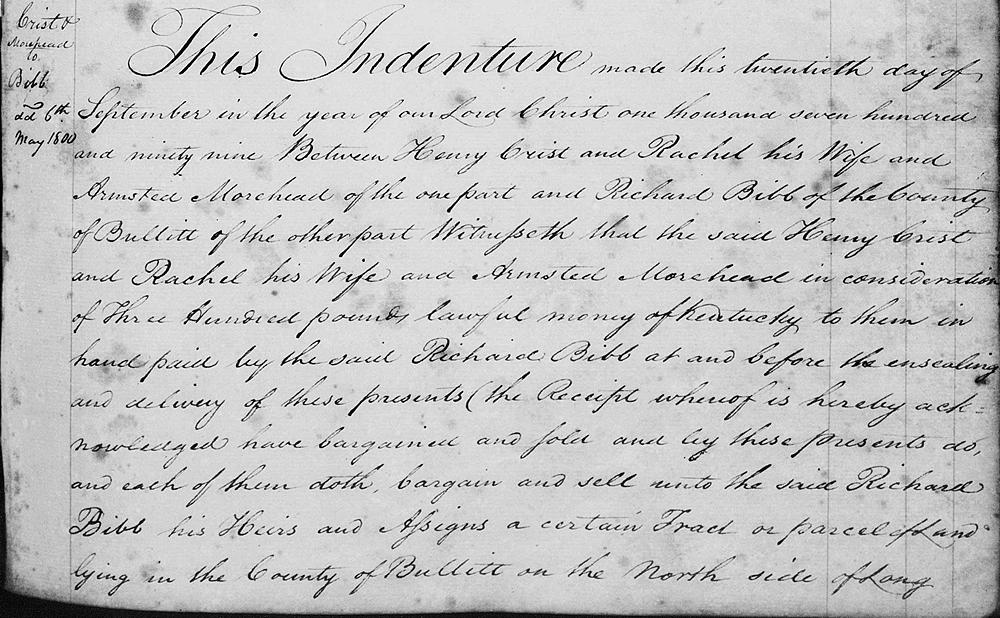 Crist &
Morehead
to
Bibb
dd 6th
May 1800
This Indenture made this twentieth day of
September in the year of our Lord Christ one thousand seven hundred
and ninety nine Between Henry Crist and Rachel his Wife and
Armsted Morehead of the one part and Richard Bibb of the County
of Bullitt of the other part Witnesseth that the said Henry Crist
and Rachel his Wife and Armsted Morehead in consideration
of Three Hundred pounds lawful money of Kentucky to them in
hand paid by the said Richard Bibb at and before the ensealing
and delivery of these presents (the Receipt whereof is hereby ack=
nowledged have bargained and sold and by these presents do,
and each of them doth, bargain and sell unto the said Richard
Bibb his Heirs and Assigns a certain Tract or parcel of Land
lying in the County of Bullitt on the North side of Long